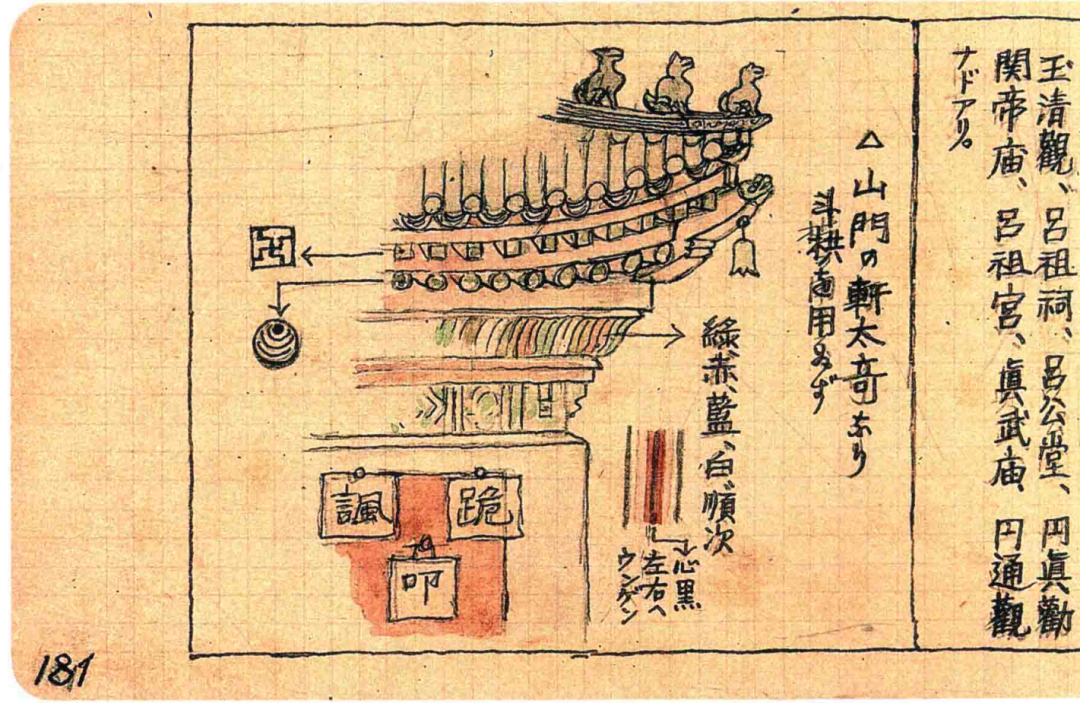 玉清觀、呂祖祠、呂公堂、円眞勸
関帝庙、呂祖宮、眞武庙、円通觀
ナドアリ。
△山門の軒太奇なり
斗栱を用ゐず
綠、赤、藍、白、順次
心黒
左右へ
ウンゲン
諷
跪
叩
181